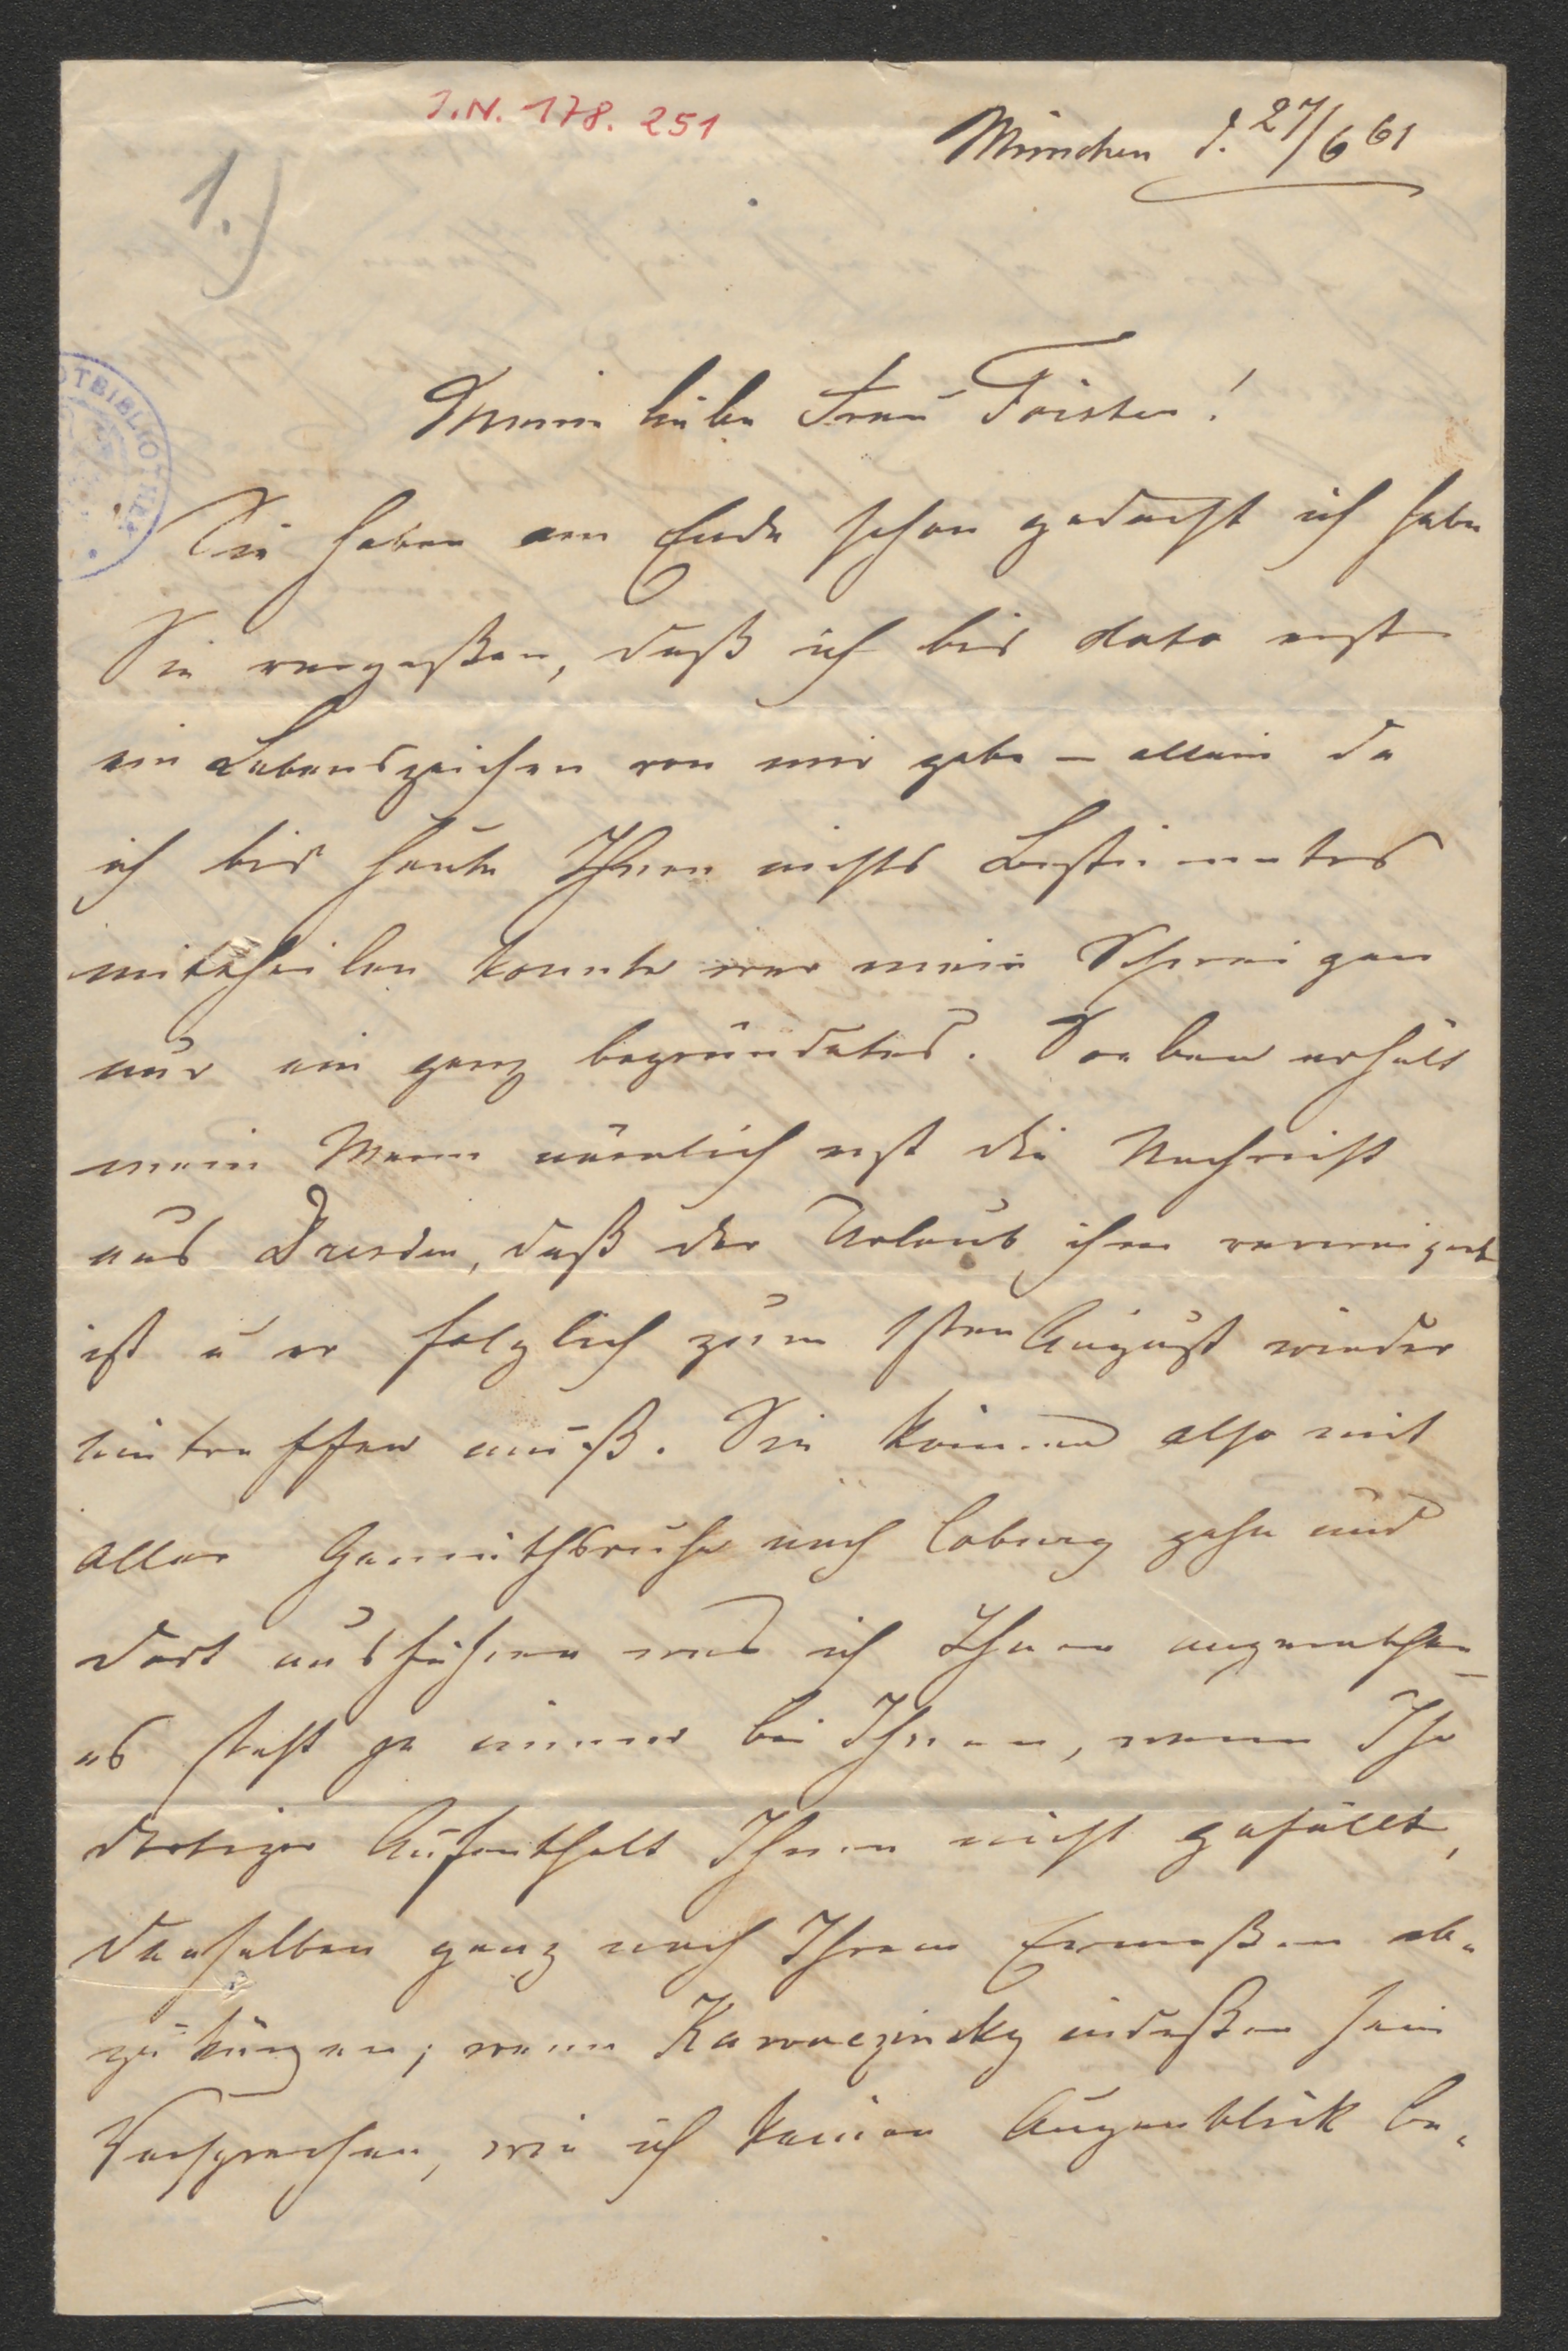 J.N. 178.251
München d. 27/6 61
1.)
Meine liebe Frau Förster!
Sie haben am Ende schon gedacht ich habe
Sie vergeßen, daß ich bis dato erst
ein Lebenszeichen von mir gebe – allein da
ich bis heute Ihnen nichts Bestimmtes
mittheilen konnte war mein Schweigen
nur ein ganz begründetes. Soeben erhält
mein Mann nämlich erst die Nachricht
aus Dresden, daß der Urlaub ihm verweigert
ist u er folglich zum 1sten August wieder
eintreffen muß. Sie können also mit
aller Gemüthsruhe nach Coburg gehn und
dort ausführen was ich Ihnen angerathen –
es steht ja immer bei Ihnen, wenn Ihr
dortiger Aufenthalt Ihnen nicht gefällt,
denselben ganz nach Ihrem Ermeßen ab-
zukürzen; wenn Kawaczinsky indeßen sein
Versprechen, wie ich keinen Augenblick be-